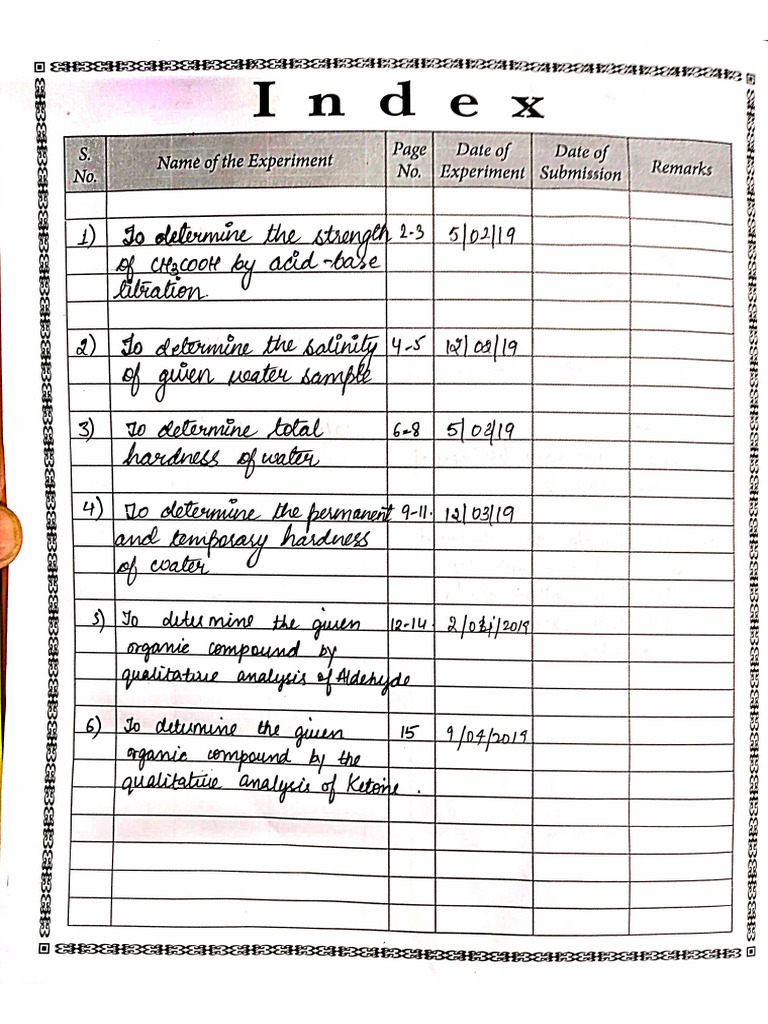 Index
S. No. Name of the Experiment Page No. Date of Experiment Date of Submission Remarks
1) To determine the strength 2-3 5/02/19
of CH3COOH by acid-base
titration
2) To determine the salinity 4-5 12/02/19
of given water sample
3) To determine total 6-8 5/03/19
hardness of water
4) To determine the permanent 9-11. 12/03/19
and temporary hardness
of water
5) To determine the given 12-14. 2/04/2019
organic compound by
qualitative analysis of Aldehyde
6) To determine the given 15 9/04/2019
organic compound by the
qualitative analysis of Ketone.